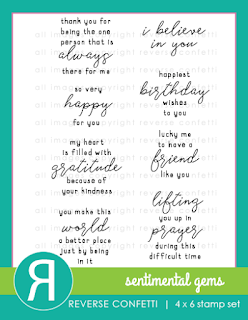 thank you for
being the one
person that is
always
there for me
so very
happy
for you
my heart
is filled with
gratitude
because of
your kindness
you make this
world
a better place
just by being
in it
i believe
in you
happiest
birthday
wishes
to you
lucky me
to have a
friend
like you
lifting
you up in
prayer
during this
difficult time
sentimental gems
R
REVERSE CONFETTI | 4 x 6 stamp set